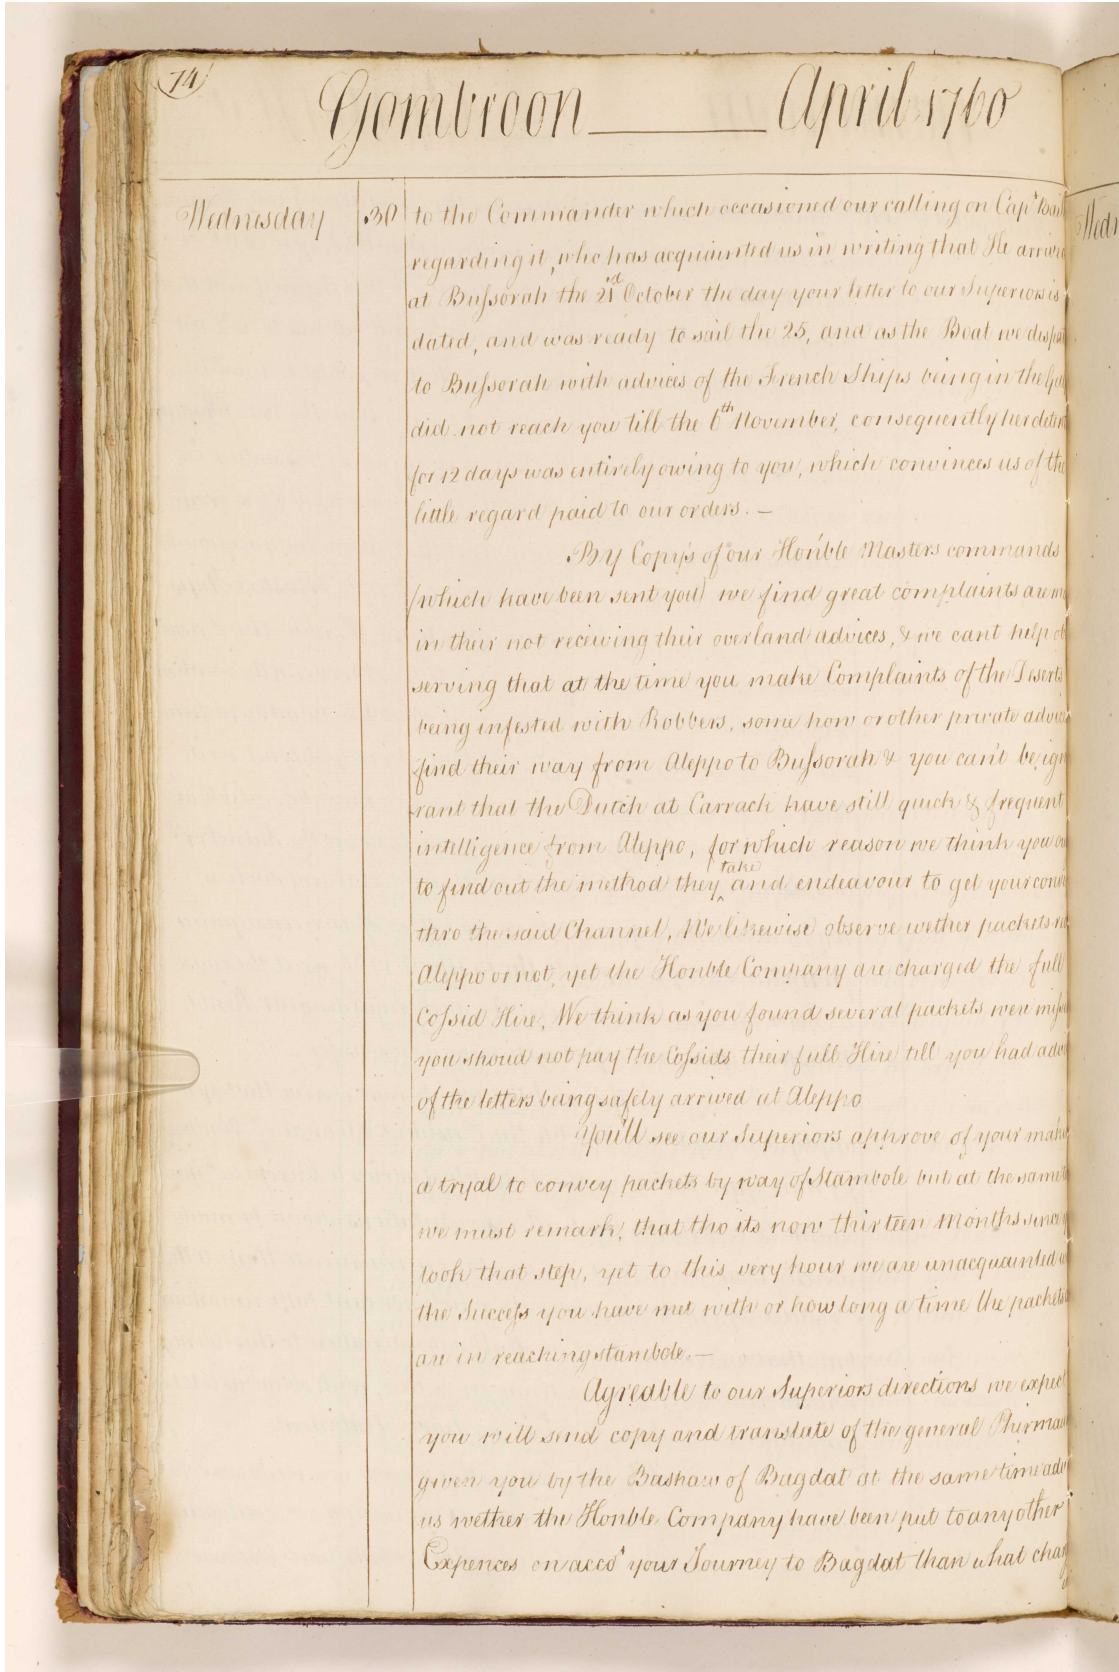 74
Gombroon ——— April 1760
Wednesday 30 to the Commander which occasioned our calling on Capt
regarding it, who has acquainted us in writing that He arrived
at Bussorah the 21st October the day your letter to our Superiors is
dated, and was ready to sail the 25, and as the Boat we
to Bussorah with advices of the French Ships being in the
did not reach you till the 6th November, consequently her
for 12 days was entirely owing to you, which convinces us of the
little regard paid to our orders. —
By Copys of our Honble Masters commands
(which have been sent you) we find great complaints are
in their not receiving their overland advices, & we cant help ob
serving that at the time you make Complaints of the Deserts
being infested with Robbers, some how or other private
find their way from Aleppo to Bussorah & you can't be
rant that the Dutch at Carrack have still quick & frequent
intelligence from Aleppo, for which reason we think you
to find out the method they take and endeavour to get your
thro the said Channel, We likewise observe wether packets
Aleppo or not, yet the Honble Company are charged the full
Cossid Hire, We think as you found several packets were
you shoud not pay the Cossids their full Hire till you had
of the letters being safely arrived at Aleppo
You'll see our Superiors approve of your
a tryal to convey packets by way of Stambole but at the same
we must remark, that tho its now thirteen Months since
took that step, yet to this very hour we are unacquainted
the Success you have met with or how long a time the packets
are in reaching Stambole. —
Agreable to our Superiors directions we expect
you will send copy and translate of the general
given you by the Bashaw of Bagdat at the same time
us wether the Honble Company have been put to any other
Expences on accot your Journey to Bagdat than what